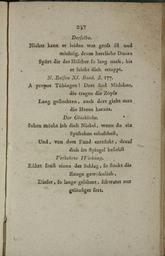 247
Derselbe.
Nichts kann er leiden was groß ist und
mächtig, drum herrliche Donau
Spürt dir der Häscher so lang nach, bis
er seicht dich ertappt.
N. Reisen XI. Band. S. 177.
A propos Tübingen! Dort sind Mädchen,
die tragen die Zöpfe
Lang geflochten, auch dort giebt man
die Horen heraus.
Der Glückliche.
Sehen möcht ich dich Nickel, wenn du ein
Späßchen erhaschest,
Und, von dem Fund entzückt, drauf
dich im Spiegel besiehst
Verkehrte Wirkung.
Rührt sonst einen der Schlag, so stockt die
Zunge gewöhnlich,
Dieser, so lange gelähmt, schwatzt nur
geläufiger fort.